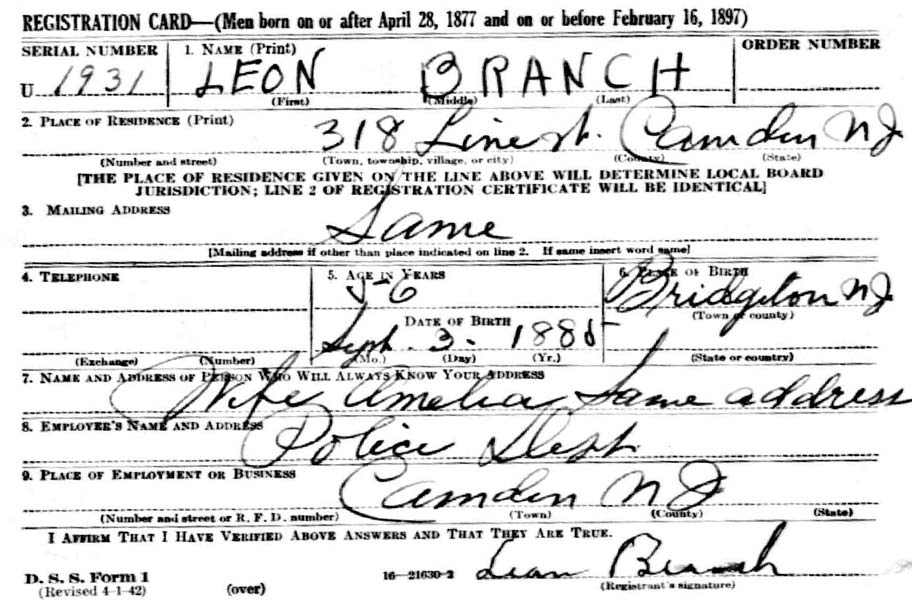 REGISTRATION CARD—(Men born on or after April 28, 1877 and on or before February 16, 1897)
SERIAL NUMBER 1. NAME (Print) ORDER NUMBER
U 1931 LEON BRANCH
(First) (Middle) (Last)
2. PLACE OF RESIDENCE (Print)
318 Line st. Camden NJ
(Number and street) (Town, township, village, or city) (County) (State)
[THE PLACE OF RESIDENCE GIVEN ON THE LINE ABOVE WILL DETERMINE LOCAL BOARD
JURISDICTION; LINE 2 OF REGISTRATION CERTIFICATE WILL BE IDENTICAL]
3. MAILING ADDRESS
Same
[Mailing address if other than place indicated on line 2. If same insert word same]
4. TELEPHONE 5. AGE IN YEARS 6. PLACE OF BIRTH
56 Bridgeton NJ
(Town or county)
DATE OF BIRTH
Sept. 3. 1885
(Exchange) (Number) (Mo.) (Day) (Yr.) (State or country)
7. NAME AND ADDRESS OF PERSON WHO WILL ALWAYS KNOW YOUR ADDRESS
Wife Amelia Same address
8. EMPLOYER'S NAME AND ADDRESS
Police Dept
9. PLACE OF EMPLOYMENT OR BUSINESS
Camden NJ
(Number and street or R. F. D. number) (Town) (County) (State)
I AFFIRM THAT I HAVE VERIFIED ABOVE ANSWERS AND THAT THEY ARE TRUE.
D. S. S. Form 1 16—21630-2 Leon Branch
(Revised 4-1-42) (over) (Registrant's signature)